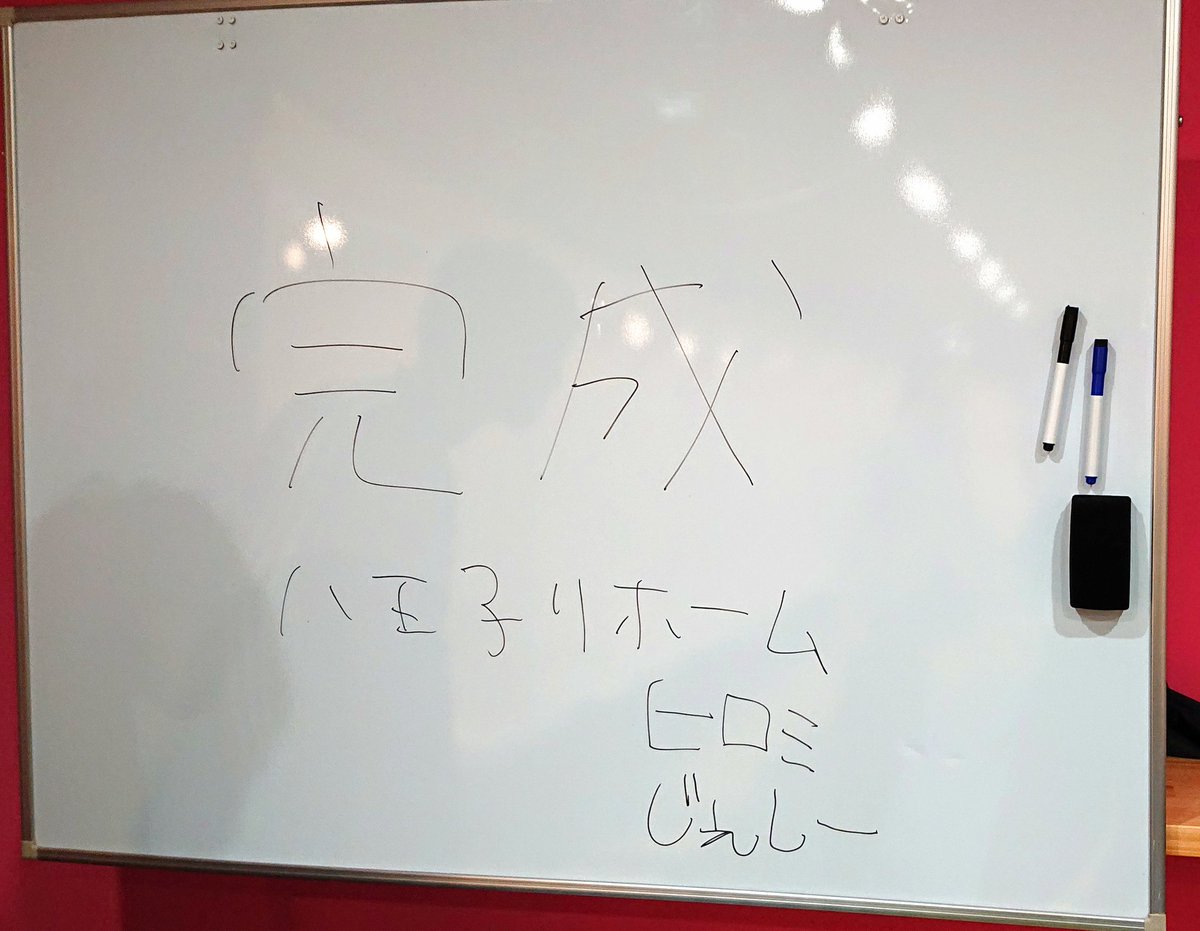 完成
八王子リホーム
ヒロミ
じぇしー